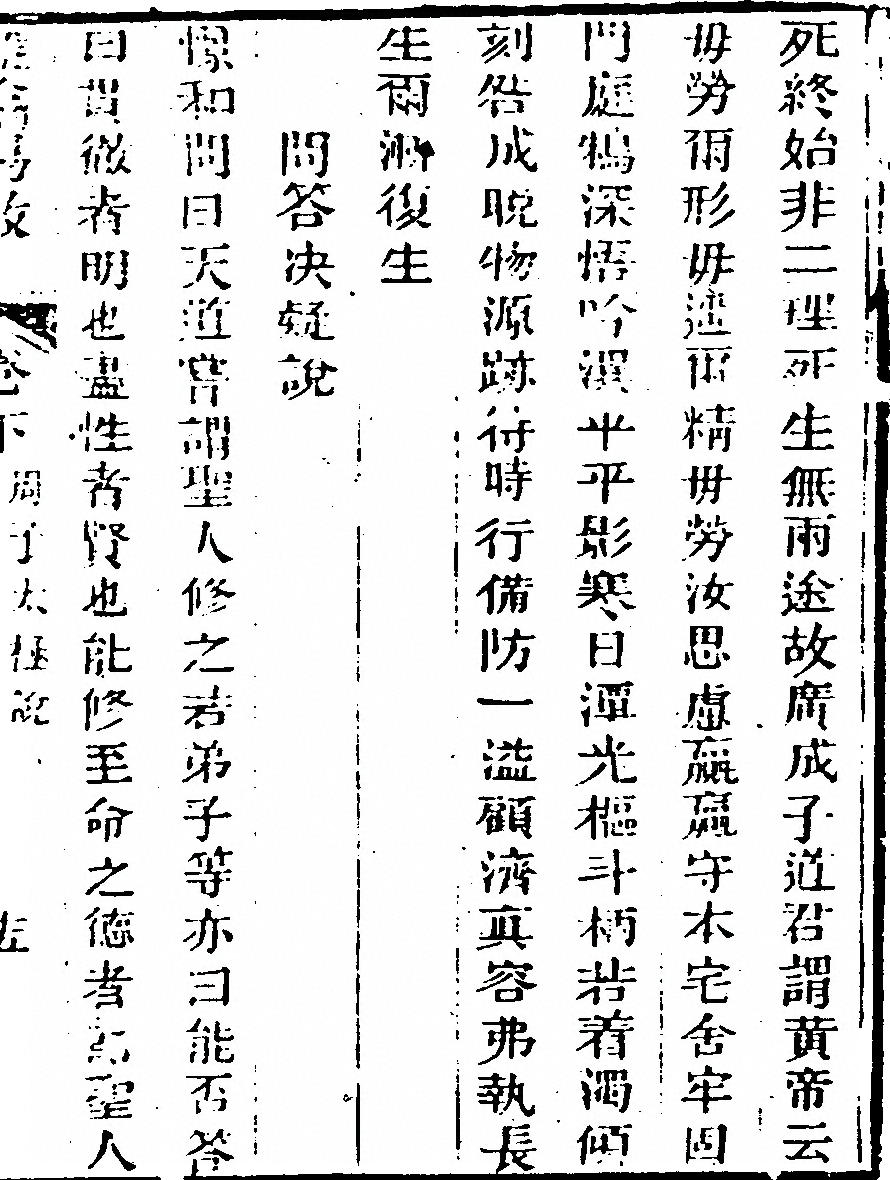 死終始非二理死生無兩途故廣成子道君謂黄帝云
毋勞爾形毋逩爾精毋勞汝思慮羸羸守本宅舍牢固
門庭犒深悟吟漠平平影寒日潭光樞斗柄若着濁傾
刻咎成晚物源跡待時行備防一溢顧濟真容弗執長
生爾漸復生
問答决疑說
憬和問曰天道嘗謂聖人修之若弟子等亦曰能否答
曰貫徹者明也盡性者賢也能修至命之德者為聖人
卷下 周子太極說